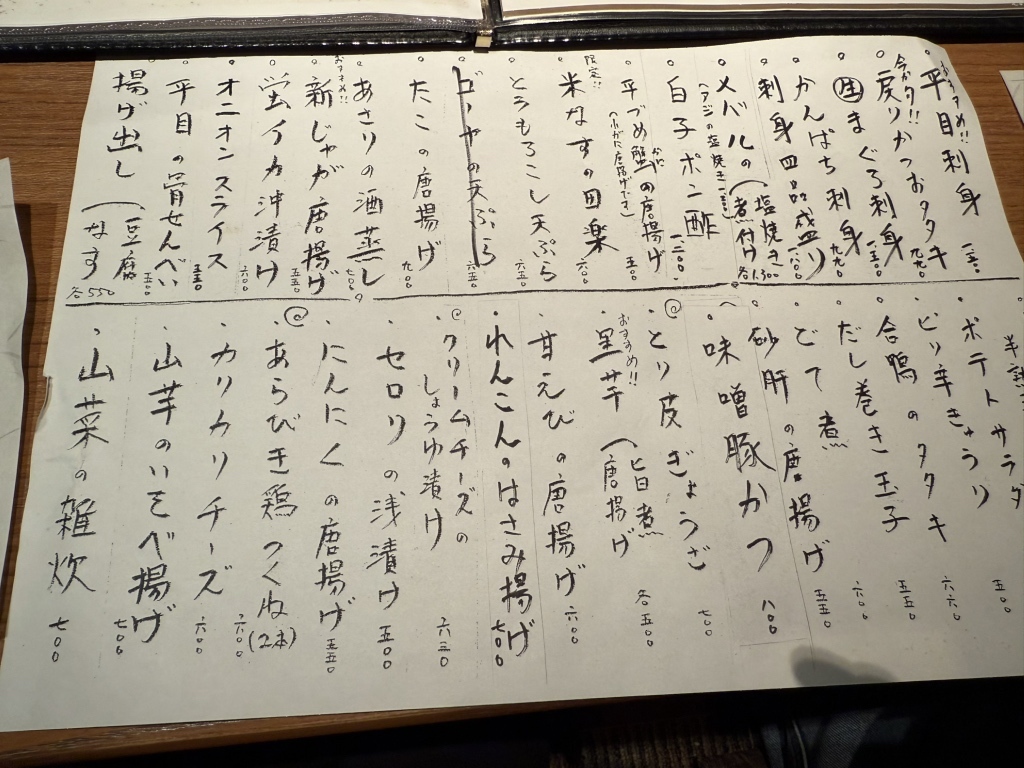 おすすめ!!
平目刺身 一、一五〇
今が旬!!
戻りかつおタタキ 九九〇
生まぐろ刺身 一、一五〇
かんぱち刺身 九九〇
刺身四品盛り 一、八〇〇
メバルの(塩焼き 煮付け 各1,300
(アジの塩焼き
白子ポン酢 一二〇〇
平づめ蟹の唐揚げ 五〇〇
かに
限定!!
米なすの田楽 六〇〇
とうもろこし天ぷら 六五〇
ゴーヤの天ぷら
たこの唐揚げ 九〇〇
あさりの酒蒸し 七〇〇
おすすめ!!
新じゃが唐揚げ 五五〇
蛍イカ沖漬け 六〇〇
オニオンスライス 五五〇
平目の骨せんべい 五五〇
揚げ出し(豆腐 なす 各550
半熟
ポテトサラダ 五〇〇
ピリ辛きゅうり 六六〇
合鴨のタタキ 五五〇
だし巻き玉子 六〇〇
どて煮 五五〇
砂肝の唐揚げ
味噌豚かつ 八〇〇
@とり皮ぎょうざ 七〇〇
おすすめ!!
里芋(旨煮 唐揚げ 各五〇〇
甘えびの唐揚げ 六〇〇
れんこんのはさみ揚げ 七〇〇
@クリームチーズの
しょうゆ漬け 六三〇
セロリの浅漬け 五〇〇
にんにくの唐揚げ 五五〇
@あらびき鶏つくね(2本) 六〇〇
カリカリチーズ 六〇〇
山芋のいそべ揚げ 七〇〇
山菜の雑炊 七〇〇